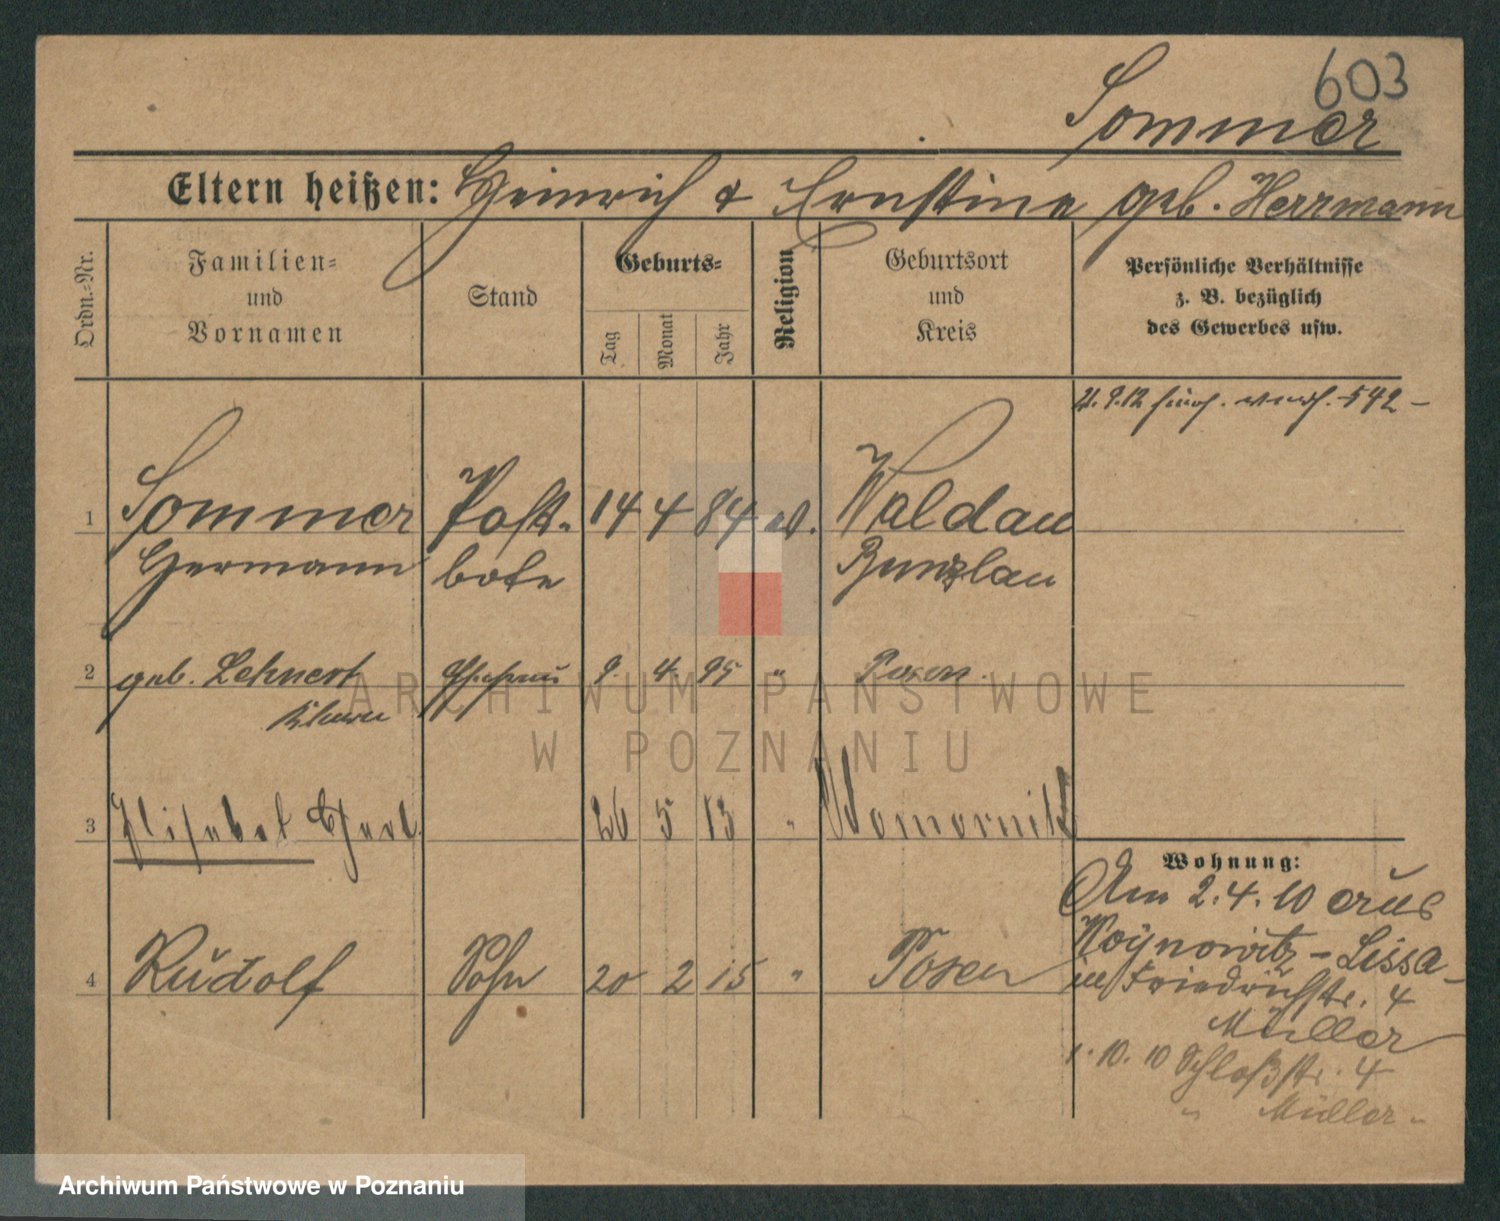 603
Sommer
Eltern heißen: Heinrich & Ernstine geb. Herrmann
Ordn.-Nr.
Familien-
und
Vornamen
Stand
Geburts-
Tag
Monat
Jahr
Religion
Geburtsort
und
Kreis
Persönliche Verhältnisse
z. B. bezüglich
des Gewerbes usw.
542 –
1 Sommer Post- 14 4 84 Waldau
Hermann bote Bunzlau
2 geb. Lehnert Ehefrau 9. 4. 95 " Posen.
3 Elisabet 26 5 13 "
Wohnung:
Am 2.4.10 aus
Woynowitz - Lissa -
in Friedrichstr. 4
4 Rudolf Sohn 20 2 15 " Posen
Müller
1. 10. 10 Schloßstr. 4
" Müller -
ARCHIWUM PAŃSTWOWE
W POZNANIU
Archiwum Państwowe w Poznaniu